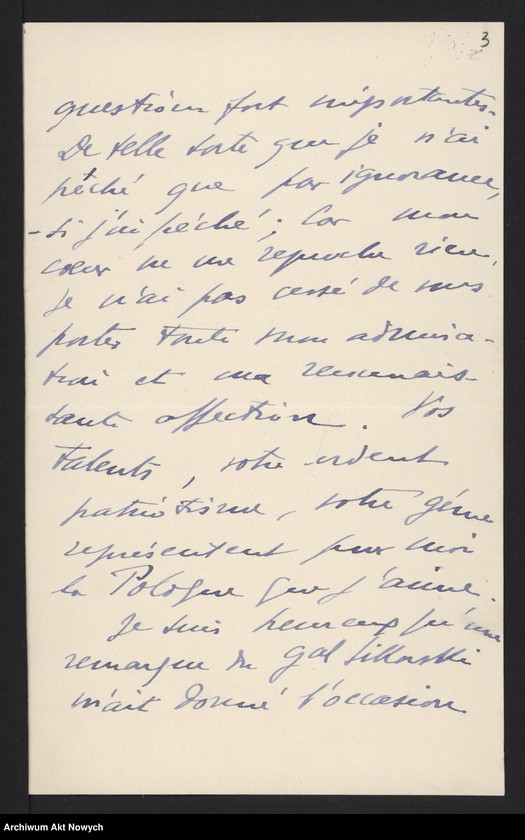 3
questions fort importantes.
De telle sorte que je n'ai
péché que par ignorance,
- si j'ai péché ; Car mon
coeur ne me reproche rien.
Je n'ai pas cessé de vous
porter toute mon admira-
tion et ma reconnais-
sante affection. Vos
talents, votre ardent
patriotisme, votre génie
représentent pour moi
la Pologne que j'aime.
Je suis heureux qu'une
remarque du Gal Sikorski
m'ait donné l'occasion
Archiwum Akt Nowych